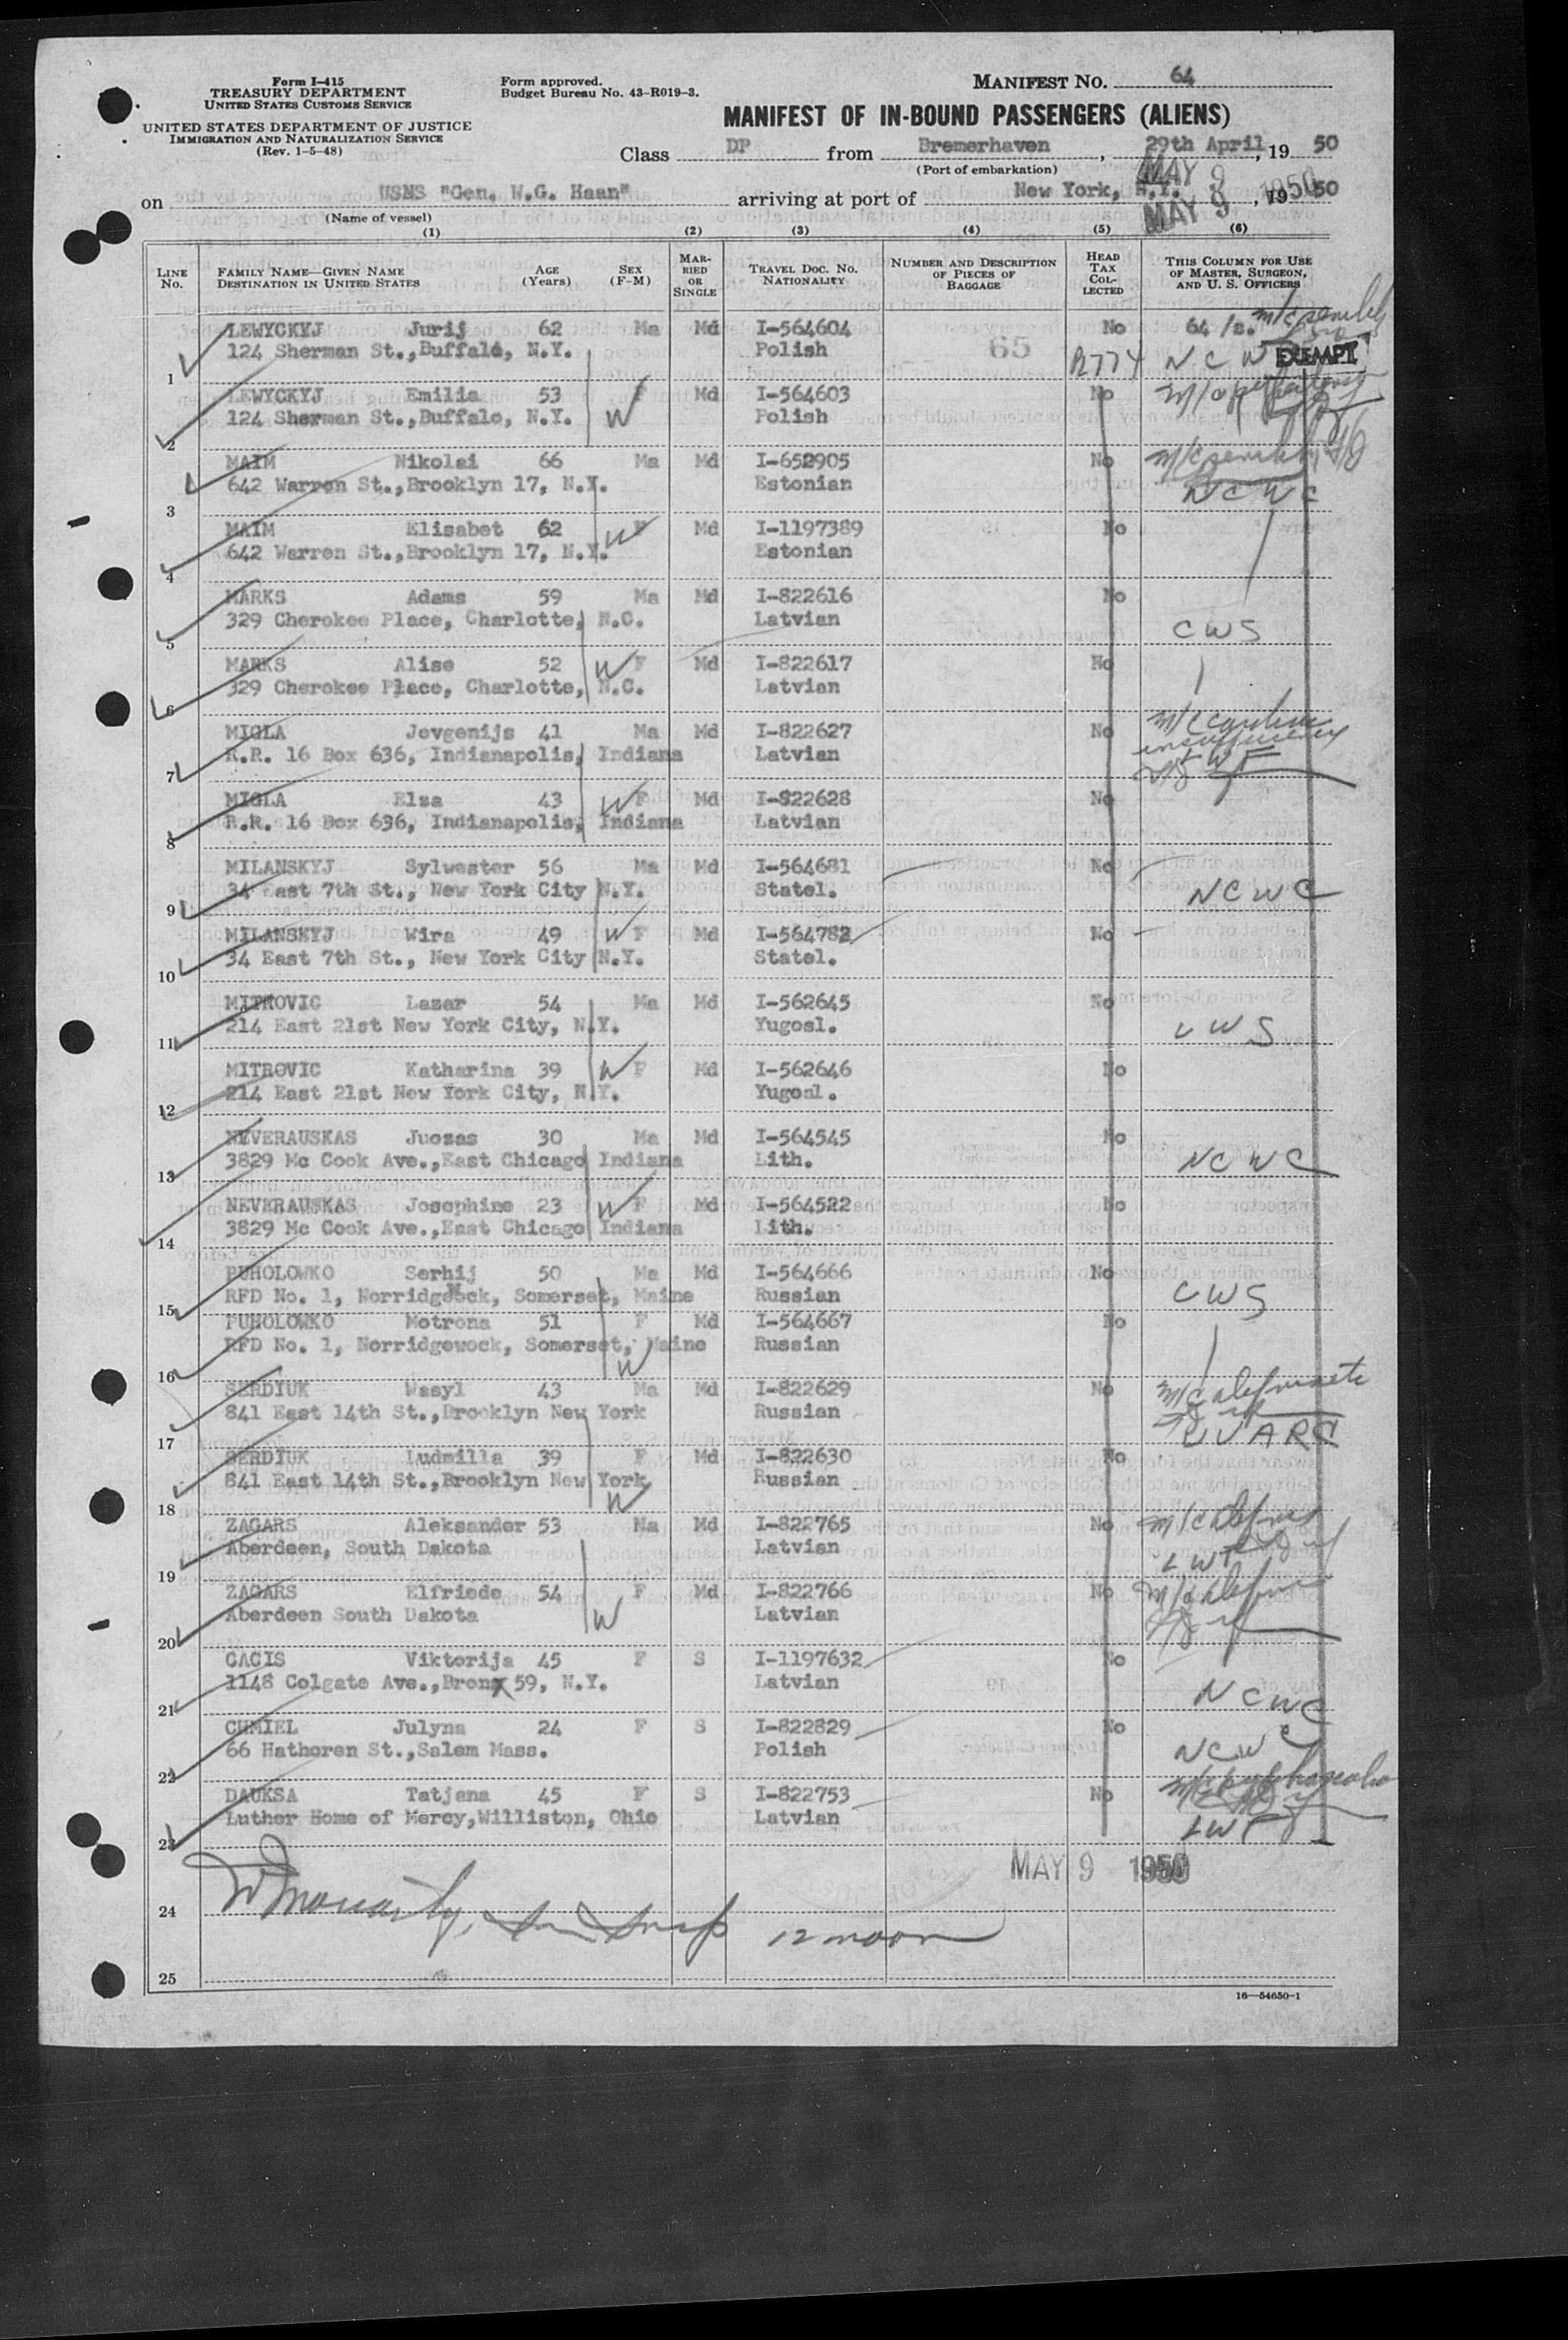 Form I-415
TREASURY DEPARTMENT
UNITED STATES CUSTOMS SERVICE
UNITED STATES DEPARTMENT OF JUSTICE
IMMIGRATION AND NATURALIZATION SERVICE
(Rev. 1-5-48)
Form approved.
Budget Bureau No. 43-R019-3.
MANIFEST NO. 64
MANIFEST OF IN-BOUND PASSENGERS (ALIENS)
Class DP from Bremerhaven, 29th April, 19 50
(Port of embarkation)
MAY 9 1950
on USNS "Gen. W.G. Haan" arriving at port of New York, N.Y., 19 50
(Name of vessel)
MAY 9
(1) (2) (3) (4) (5) (6)
LINE No. FAMILY NAME—GIVEN NAME DESTINATION IN UNITED STATES AGE (Years) SEX (F-M) MARRIED OR SINGLE TRAVEL DOC. NO. NATIONALITY NUMBER AND DESCRIPTION OF PIECES OF BAGGAGE HEAD TAX COLLECTED THIS COLUMN FOR USE OF MASTER, SURGEON, AND U. S. OFFICERS
LEWYCKYJ Jurij 62 Ma Md I-564604 No 64/s. m/c
1 124 Sherman St.,Buffalo, N.Y. Polish 65 N C W EXEMPT
LEWYCKYJ Emilia 53 F Md I-564603 No
2 124 Sherman St.,Buffalo, N.Y. W Polish
MAIM Nikolai 66 Ma Md I-652905 No m/c
3 642 Warren St.,Brooklyn 17, N.Y. Estonian NCWC
MAIM Elisabet 62 W F Md I-1197389 No
4 642 Warren St.,Brooklyn 17, N.Y. Estonian
MARKS Adams 59 Ma Md I-822616 No
5 329 Cherokee Place, Charlotte, N.C. Latvian CWS
MARKS Alise 52 W F Md I-822617 No
6 329 Cherokee Place, Charlotte, N.C. Latvian
MIGLA Jevgenijs 41 Ma Md I-822627 No m/c
7 R.R. 16 Box 636, Indianapolis, Indiana Latvian insufficiency LWF
MIGLA Elza 43 W F Md I-822628 No
8 R.R. 16 Box 636, Indianapolis, Indiana Latvian
MILANSKYJ Sylwester 56 Ma Md I-564681 No
9 34 East 7th St., New York City N.Y. Statel. NCWC
MILANSKYJ Wira 49 W F Md I-564782 No
10 34 East 7th St., New York City N.Y. Statel.
MITROVIC Lazar 54 Ma Md I-562645 No
11 214 East 21st New York City, N.Y. Yugosl. CWS
MITROVIC Katharina 39 W F Md I-562646 No
12 214 East 21st New York City, N.Y. Yugosl.
NEVERAUSKAS Juozas 30 Ma Md I-564545 No
13 3829 Mc Cook Ave.,East Chicago Indiana Lith. NCWC
NEVERAUSKAS Josephine 23 W F Md I-564522 No
14 3829 Mc Cook Ave.,East Chicago Indiana Lith.
PUHOLOWKO Serhij 50 Ma Md I-564666 No
15 RFD No. 1, Norridgewock, Somerset, Maine Russian CWS
PUHOLOWKO Motrona 51 F Md I-564667 No
16 RFD No. 1, Norridgewock, Somerset, Maine W Russian
SERDIUK Wasyl 43 Ma Md I-822629 No m/c
17 841 East 14th St.,Brooklyn New York Russian
SERDIUK Ludmilla 39 F Md I-822630 No
18 841 East 14th St.,Brooklyn New York W Russian
ZAGARS Aleksander 53 Ma Md I-822765 No m/c
19 Aberdeen, South Dakota Latvian LWF
ZAGARS Elfriede 54 F Md I-822766 No m/c
20 Aberdeen South Dakota W Latvian
CACIS Viktorija 45 F S I-1197632 No
21 1148 Colgate Ave.,Bronx 59, N.Y. Latvian NCWC
CHMIEL Julyna 24 F S I-822829 No
22 66 Hathoren St.,Salem Mass. Polish NCWC
DAUKSA Tatjana 45 F S I-822753 No m/c
23 Luther Home of Mercy,Williston, Ohio Latvian LWF
MAY 9 1950
24 12 noon
25
16—54650-1